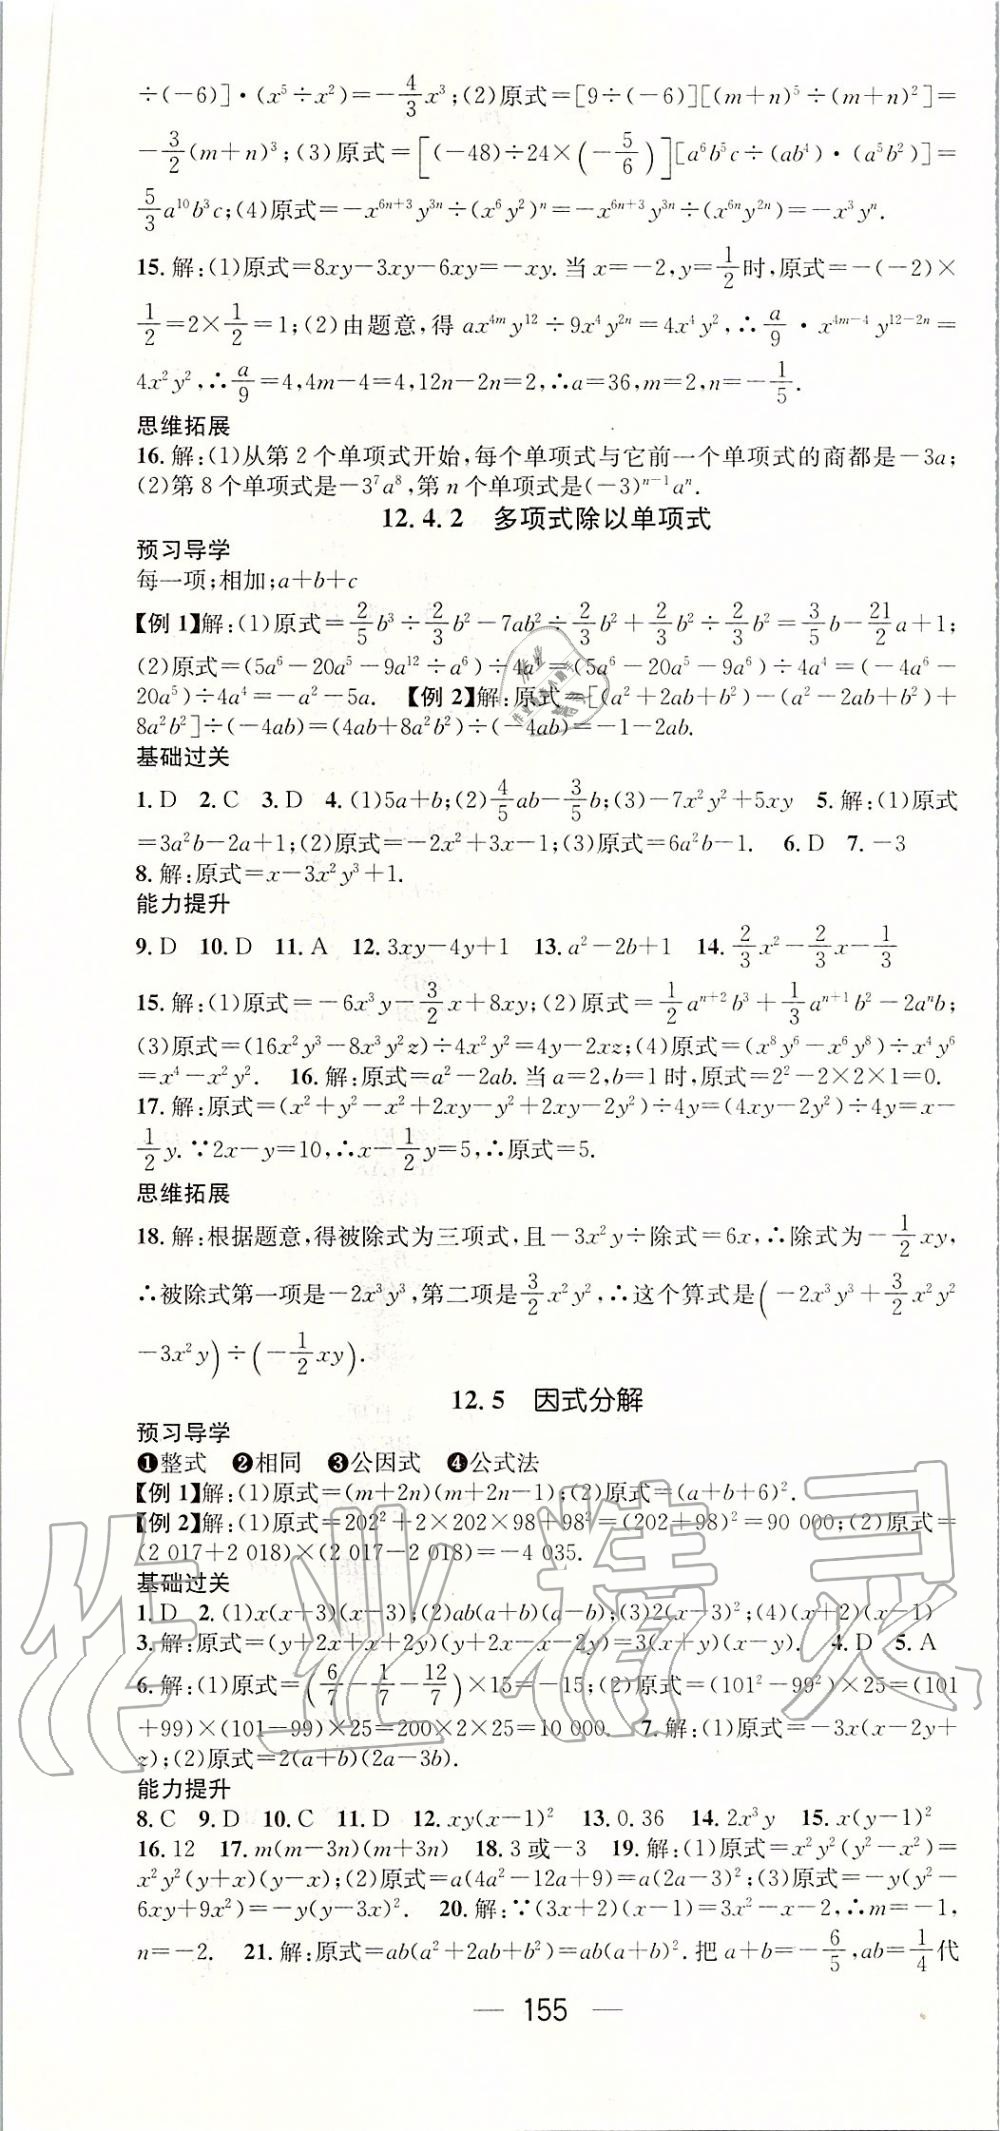 ÷(-6)]·(x⁵÷x²)=-4/3x³;(2)原式=[9÷(-6)][(m+n)⁵÷(m+n)²]=
-3/2(m+n)³;(3)原式=[(-48)÷24×(-5/6)][a⁶b⁵c÷(ab⁴)·(a⁵b²)]=
5/3a¹⁰b³c;(4)原式=-x⁶ⁿ⁺³y³ⁿ÷(x⁶y²)ⁿ=-x⁶ⁿ⁺³y³ⁿ÷(x⁶ⁿy²ⁿ)=-x³yⁿ.
15.解:(1)原式=8xy-3xy-6xy=-xy.当x=-2,y=1/2时,原式=-(-2)×
1/2=2×1/2=1;(2)由题意,得ax⁴ᵐy¹²÷9x⁴y²ⁿ=4x⁴y²,∴a/9·x⁴ᵐ⁻⁴y¹²⁻²ⁿ=
4x²y²,∴a/9=4,4m-4=4,12n-2n=2,∴a=36,m=2,n=-1/5.
思维拓展
16.解:(1)从第2个单项式开始,每个单项式与它前一个单项式的商都是-3a;
(2)第8个单项式是-3⁷a⁸,第n个单项式是(-3)ⁿ⁻¹aⁿ.
12.4.2 多项式除以单项式
预习导学
每一项;相加;a+b+c
【例1】解:(1)原式=2/5b³÷2/3b²-7ab²÷2/3b²+2/3b²÷2/3b²=3/5b-21/2a+1;
(2)原式=(5a⁶-20a⁵-9a¹²÷a⁶)÷4a⁴=(5a⁶-20a⁵-9a⁶)÷4a⁴=(-4a⁶-
20a⁵)÷4a⁴=-a²-5a. 【例2】解:原式=[(a²+2ab+b²)-(a²-2ab+b²)+
8a²b²]÷(-4ab)=(4ab+8a²b²)÷(-4ab)=-1-2ab.
基础过关
1.D 2.C 3.D 4.(1)5a+b;(2)4/5ab-3/5b;(3)-7x²y²+5xy 5.解:(1)原式
=3a²b-2a+1;(2)原式=-2x²+3x-1;(3)原式=6a²b-1. 6.D 7.-3
8.解:原式=x-3x²y³+1.
能力提升
9.D 10.D 11.A 12.3xy-4y+1 13.a²-2b+1 14.2/3x²-2/3x-1/3
15.解:(1)原式=-6x³y-3/2x+8xy;(2)原式=1/2aⁿ⁺²b³+1/3aⁿ⁺¹b²-2aⁿb;
(3)原式=(16x²y³-8x³y²z)÷4x²y²=4y-2xz;(4)原式=(x⁸y⁶-x⁶y⁸)÷x⁴y⁶
=x⁴-x²y². 16.解:原式=a²-2ab.当a=2,b=1时,原式=2²-2×2×1=0.
17.解:原式=(x²+y²-x²+2xy-y²+2xy-2y²)÷4y=(4xy-2y²)÷4y=x-
1/2y.∵2x-y=10,∴x-1/2y=5,∴原式=5.
思维拓展
18.解:根据题意,得被除式为三项式,且-3x²y÷除式=6x,∴除式为-1/2xy,
∴被除式第一项是-2x³y³,第二项是3/2x²y²,∴这个算式是(-2x³y³+3/2x²y²
-3x²y)÷(-1/2xy).
12.5 因式分解
预习导学
❶整式 ❷相同 ❸公因式 ❹公式法
【例1】解:(1)原式=(m+2n)(m+2n-1);(2)原式=(a+b+6)².
【例2】解:(1)原式=202²+2×202×98+98²=(202+98)²=90 000;(2)原式=
(2 017+2 018)×(2 017-2 018)=-4 035.
基础过关
1.D 2.(1)x(x+3)(x-3);(2)ab(a+b)(a-b);(3)2(x-3)²;(4)(x+2)(x-1)
3.解:原式=(y+2x+x+2y)(y+2x-x-2y)=3(x+y)(x-y). 4.D 5.A
6.解:(1)原式=(6/7-1/7-12/7)×15=-15;(2)原式=(101²-99²)×25=(101
+99)×(101-99)×25=200×2×25=10 000. 7.解:(1)原式=-3x(x-2y+
z);(2)原式=2(a+b)(2a-3b).
能力提升
8.C 9.D 10.C 11.D 12.xy(x-1)² 13.0.36 14.2x³y 15.x(y-1)²
16.12 17.m(m-3n)(m+3n) 18.3或-3 19.解:(1)原式=x²y²(y²-x²)=
x²y²(y+x)(y-x);(2)原式=a(4a²-12a+9)=a(2a-3)²;(3)原式=-y(y²-
6xy+9x²)=-y(y-3x)². 20.解:∵(3x+2)(x-1)=3x²-x-2,∴m=-1,
n=-2. 21.解:原式=ab(a²+2ab+b²)=ab(a+b)².把a+b=-6/5,ab=1/4代
155
作业精灵